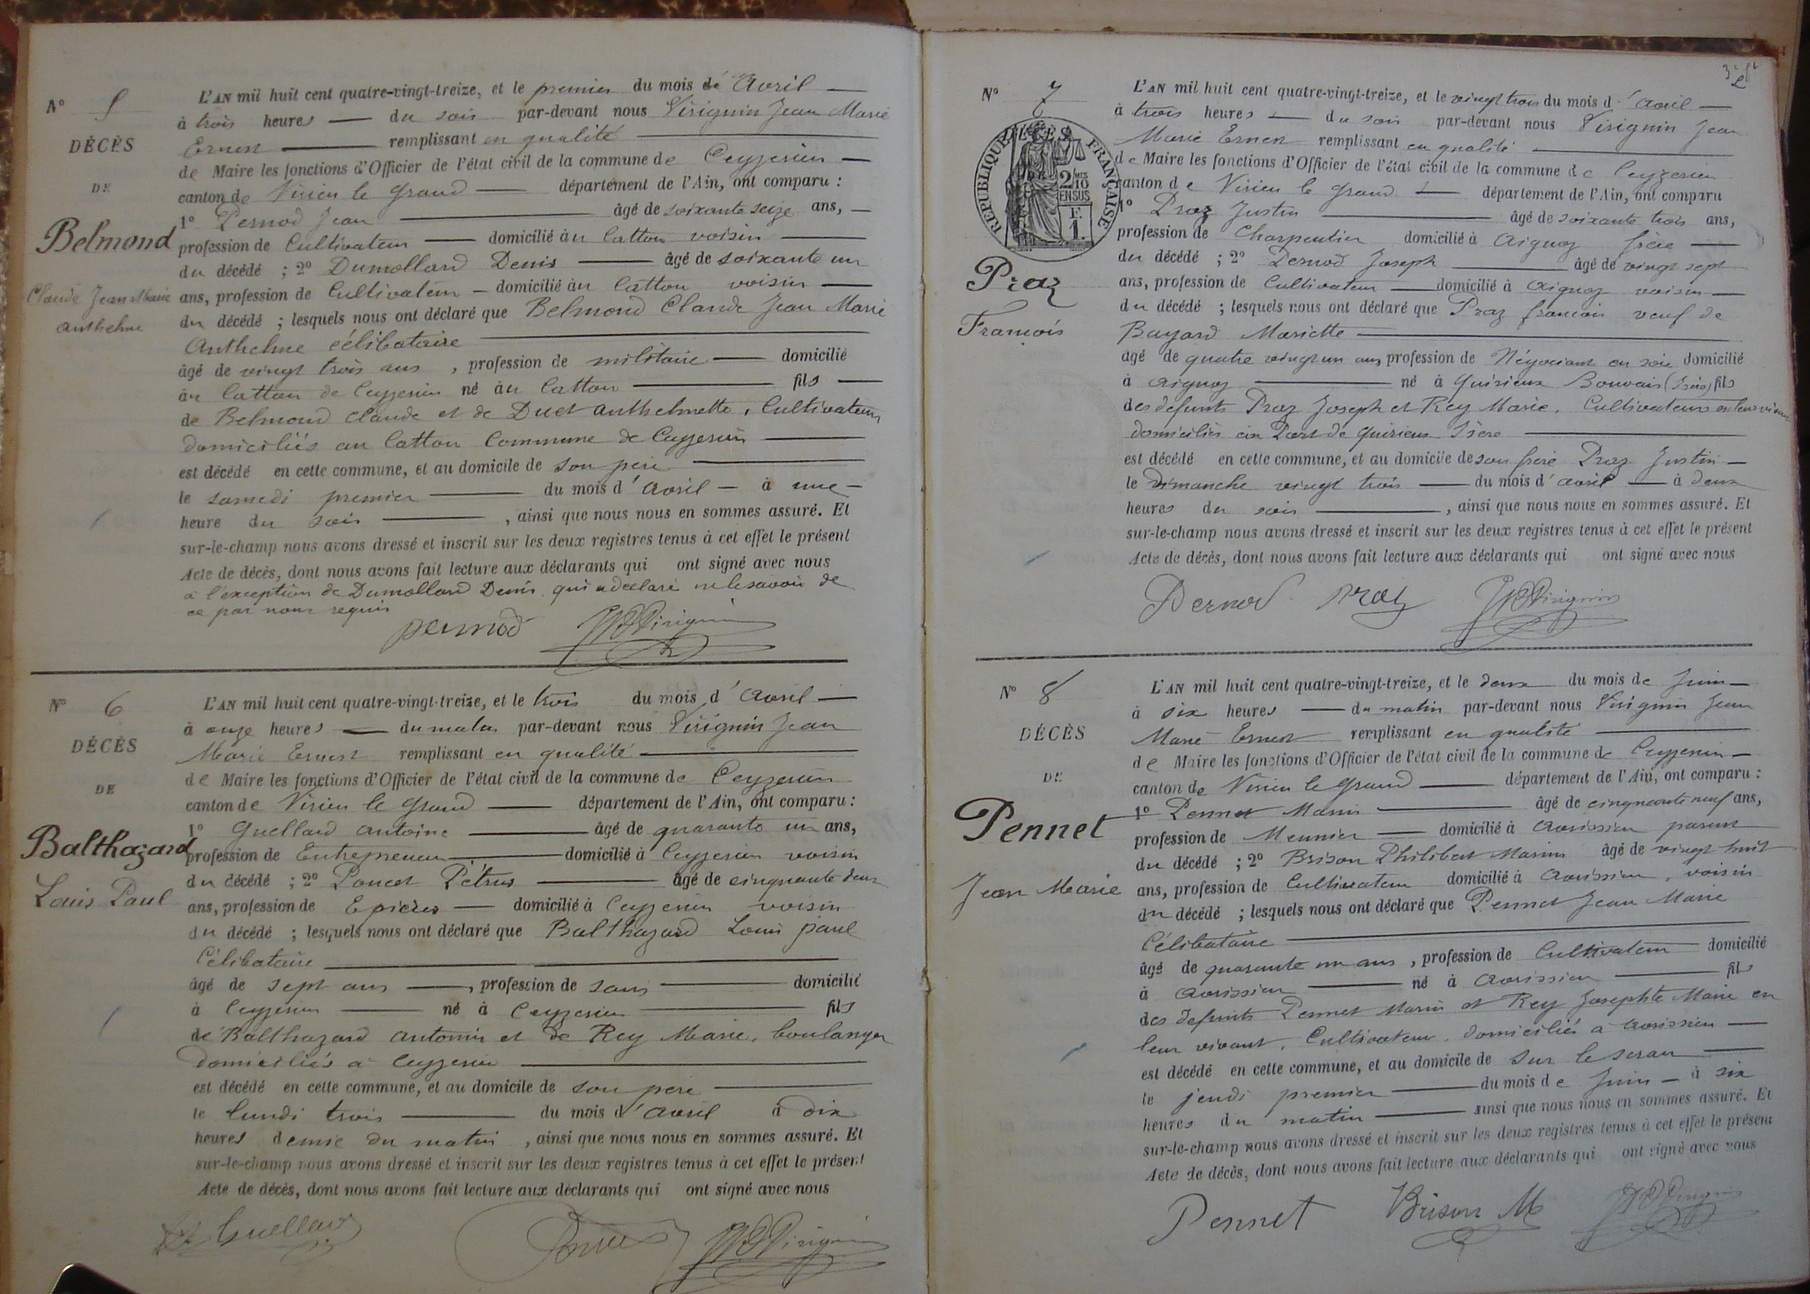 N° 5
DÉCÈS
DE
Belmond
Claude Jean Marie
Anthelme
L'AN mil huit cent quatre-vingt-treize, et le premier du mois de Avril
à trois heures du soir par-devant nous Virignin Jean Marie
Ernest remplissant en qualité
de Maire les fonctions d'Officier de l'état civil de la commune de Ceyzerieu
canton de Virieu le Grand département de l'Ain, ont comparu :
1° Pernod Jean âgé de soixante seize ans,
profession de Cultivateur domicilié au Catton voisin
du décédé ; 2° Dumollard Denis âgé de soixante un
ans, profession de Cultivateur domicilié au Catton voisin
du décédé ; lesquels nous ont déclaré que Belmond Claude Jean Marie
Anthelme célibataire
âgé de vingt trois ans , profession de militaire domicilié
au Catton de Ceyzerieu né au Catton fils
de Belmond Claude et de Duet Anthelmette, Cultivateurs
domiciliés au Catton Commune de Ceyzerieu
est décédé en cette commune, et au domicile de son père
le samedi premier du mois d'avril à une
heure du soir , ainsi que nous nous en sommes assuré. Et
sur-le-champ nous avons dressé et inscrit sur les deux registres tenus à cet effet le présent
Acte de décès, dont nous avons fait lecture aux déclarants qui ont signé avec nous
à l'exception de Dumollard Denis qui a déclaré ne le savoir de
ce par nous requis
pernod JMEVirignin
N° 6
DÉCÈS
DE
Balthazard
Louis Paul
L'AN mil huit cent quatre-vingt-treize, et le trois du mois d'Avril
à onze heures du matin par-devant nous Virignin Jean
Marie Ernest remplissant en qualité
de Maire les fonctions d'Officier de l'état civil de la commune de Ceyzerieu
canton de Virieu le Grand département de l'Ain, ont comparu :
1° Guellard Antoine âgé de quarante un ans,
profession de Entrepreneur domicilié à Ceyzerieu voisin
du décédé ; 2° Poncet Pétrus âgé de cinquante deux
ans, profession de Epicier domicilié à Ceyzerieu voisin
du décédé ; lesquels nous ont déclaré que Balthazard Louis paul
Célibataire
âgé de sept ans , profession de sans domicilié
à Ceyzerieu né à Ceyzerieu fils
de Balthazard Antonin et de Rey Marie, boulanger
domiciliés à Ceyzerieu
est décédé en cette commune, et au domicile de son père
le lundi trois du mois d'avril à dix
heures demie du matin , ainsi que nous nous en sommes assuré. Et
sur-le-champ nous avons dressé et inscrit sur les deux registres tenus à cet effet le présent
Acte de décès, dont nous avons fait lecture aux déclarants qui ont signé avec nous
Guellard Poncet JMEVirignin
N° 7
DÉCÈS
RÉPUBLIQUE FRANÇAISE
2/10
EN SUS
F.
1.
Praz
François
L'AN mil huit cent quatre-vingt-treize, et le vingt trois du mois d'avril
à trois heures du soir par-devant nous Virignin Jean
Marie Ernest remplissant en qualité
de Maire les fonctions d'Officier de l'état civil de la commune de Ceyzerieu
canton de Virieu le Grand département de l'Ain, ont comparu
1° Praz Justin âgé de soixante trois ans,
profession de Charpentier domicilié à Aignoz frère
du décédé ; 2° Pernod Joseph âgé de vingt sept
ans, profession de Cultivateur domicilié à Aignoz voisin
du décédé ; lesquels nous ont déclaré que Praz françois veuf de
Bayard Mariette
âgé de quatre vingt un ans, profession de Négociant en soie domicilié
à Aignoz né à Quirieux Bouvais (Isère) fils
des defunts Praz Joseph et Rey Marie, Cultivateurs en leur vivant
domiciliés au Port de Quirieux Isère
est décédé en cette commune, et au domicile de son frère Praz Justin
le dimanche vingt trois du mois d'avril à deux
heures du soir , ainsi que nous nous en sommes assuré. Et
sur-le-champ nous avons dressé et inscrit sur les deux registres tenus à cet effet le présent
Acte de décès, dont nous avons fait lecture aux déclarants qui ont signé avec nous
Pernod praz JMEVirignin
N° 8
DÉCÈS
DE
Pennet
Jean Marie
L'AN mil huit cent quatre-vingt-treize, et le deux du mois de Juin
à six heures du matin par-devant nous Virignin Jean
Marie Ernest remplissant en qualité
de Maire les fonctions d'Officier de l'état civil de la commune de Ceyzerieu
canton de Virieu le Grand département de l'Ain, ont comparu :
1° Pennet Marin âgé de cinquante neuf ans,
profession de Meunier domicilié à Avrissieu parent
du décédé ; 2° Brison Philibert Marin âgé de vingt huit
ans, profession de Cultivateur domicilié à Avrissieu, voisin
du décédé ; lesquels nous ont déclaré que Pennet Jean Marie
Célibataire
âgé de quarante un ans , profession de Cultivateur domicilié
à Avrissieu né à Avrissieu fils
des defunts Pennet Marin et Rey Josephte Marie en
leur vivant, Cultivateur, domiciliés à Avrissieu
est décédé en cette commune, et au domicile de sur le seran
le jeudi premier du mois de Juin à six
heures du matin ainsi que nous nous en sommes assuré. Et
sur-le-champ nous avons dressé et inscrit sur les deux registres tenus à cet effet le présent
Acte de décès, dont nous avons fait lecture aux déclarants qui ont signé avec nous
Pennet Brison M JMEVirignin